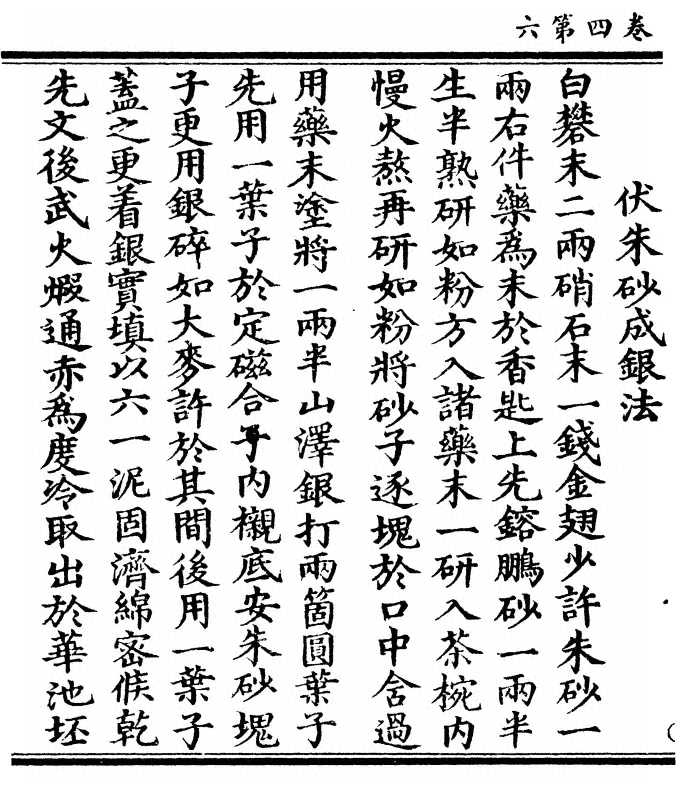 卷四第六
伏朱砂成銀法
白礬末二兩硝石末一錢金翅少許朱砂一
兩右件藥為末於香匙上先鎔鵬砂一兩半
生半熟研如粉方入諸藥末一研入茶椀内
慢火熬再研如粉將砂子逐塊於口中含過
用藥末塗將一兩半山澤銀打兩箇圓葉子
先用一葉子於定磁合子内襯底安朱砂塊
子更用銀碎如大麥許於其間後用一葉子
蓋之更着銀實填以六一泥固濟綿密候乾
先文後武火煆通赤為度冷取出於華池坯